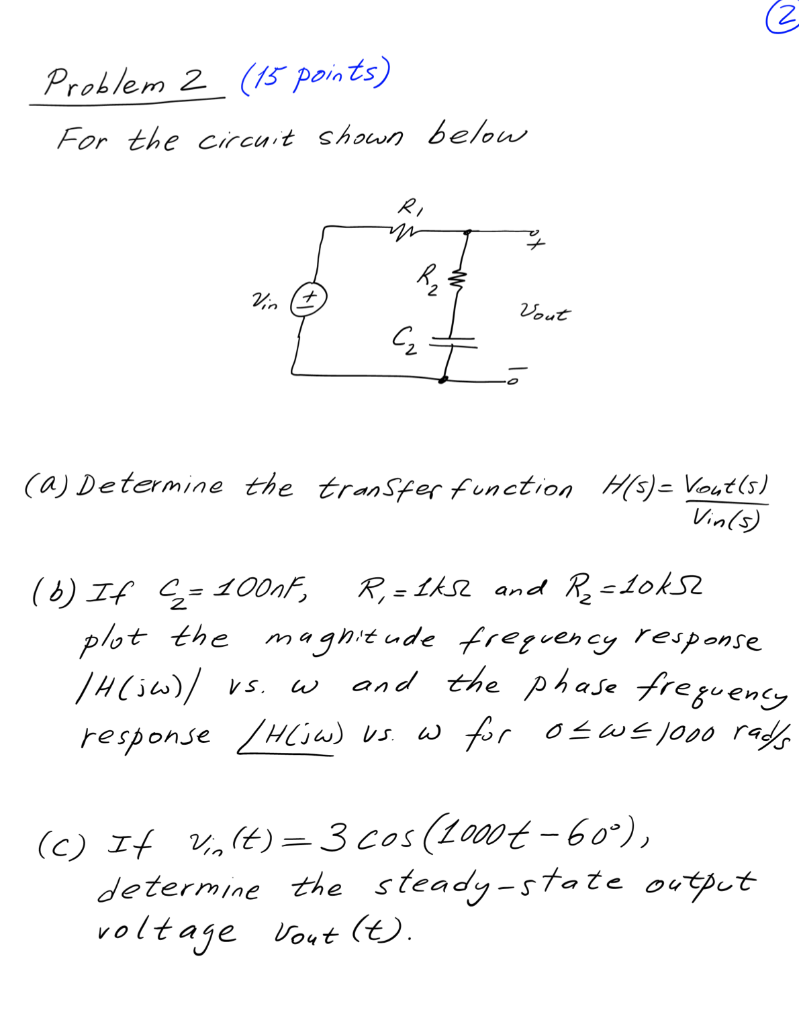 2
Problem 2 (15 points)
For the circuit shown below
R1
+
R2
Vin
+
Vout
C2
-
(a) Determine the transfer function H(s) = Vout(s)
Vin(s)
(b) If C2 = 100nF, R1 = 1kΩ and R2 = 10kΩ
plot the magnitude frequency response
|H(jω)| vs. ω and the phase frequency
response ∠H(jω) vs. ω for 0 ≤ ω ≤ 1000 rad/s
(c) If vin(t) = 3 cos(1000t - 60°),
determine the steady-state output
voltage vout(t).